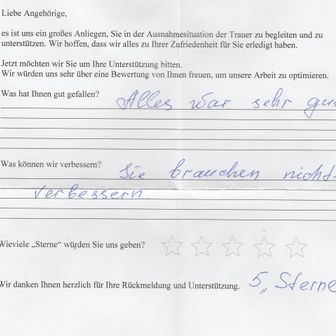 Liebe Angehörige,
es ist uns ein großes Anliegen, Sie in der Ausnahmesituation der Trauer zu begleiten und zu
unterstützen. Wir hoffen, dass wir alles zu Ihrer Zufriedenheit für Sie erledigt haben.
Jetzt möchten wir Sie um Ihre Unterstützung bitten.
Wir würden uns sehr über eine Bewertung von Ihnen freuen, um unsere Arbeit zu optimieren.
Was hat Ihnen gut gefallen? Alles war sehr gu
Was können wir verbessern? Sie brauchen nicht
verbessern
Wieviele „Sterne“ würden Sie uns geben?
Wir danken Ihnen herzlich für Ihre Rückmeldung und Unterstützung. 5 „Sterne